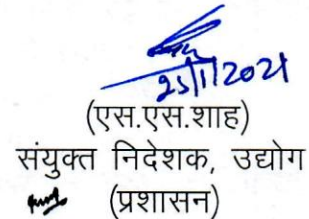 25/1/2021
(एस.एस.शाह)
संयुक्त निदेशक, उद्योग
(प्रशासन)